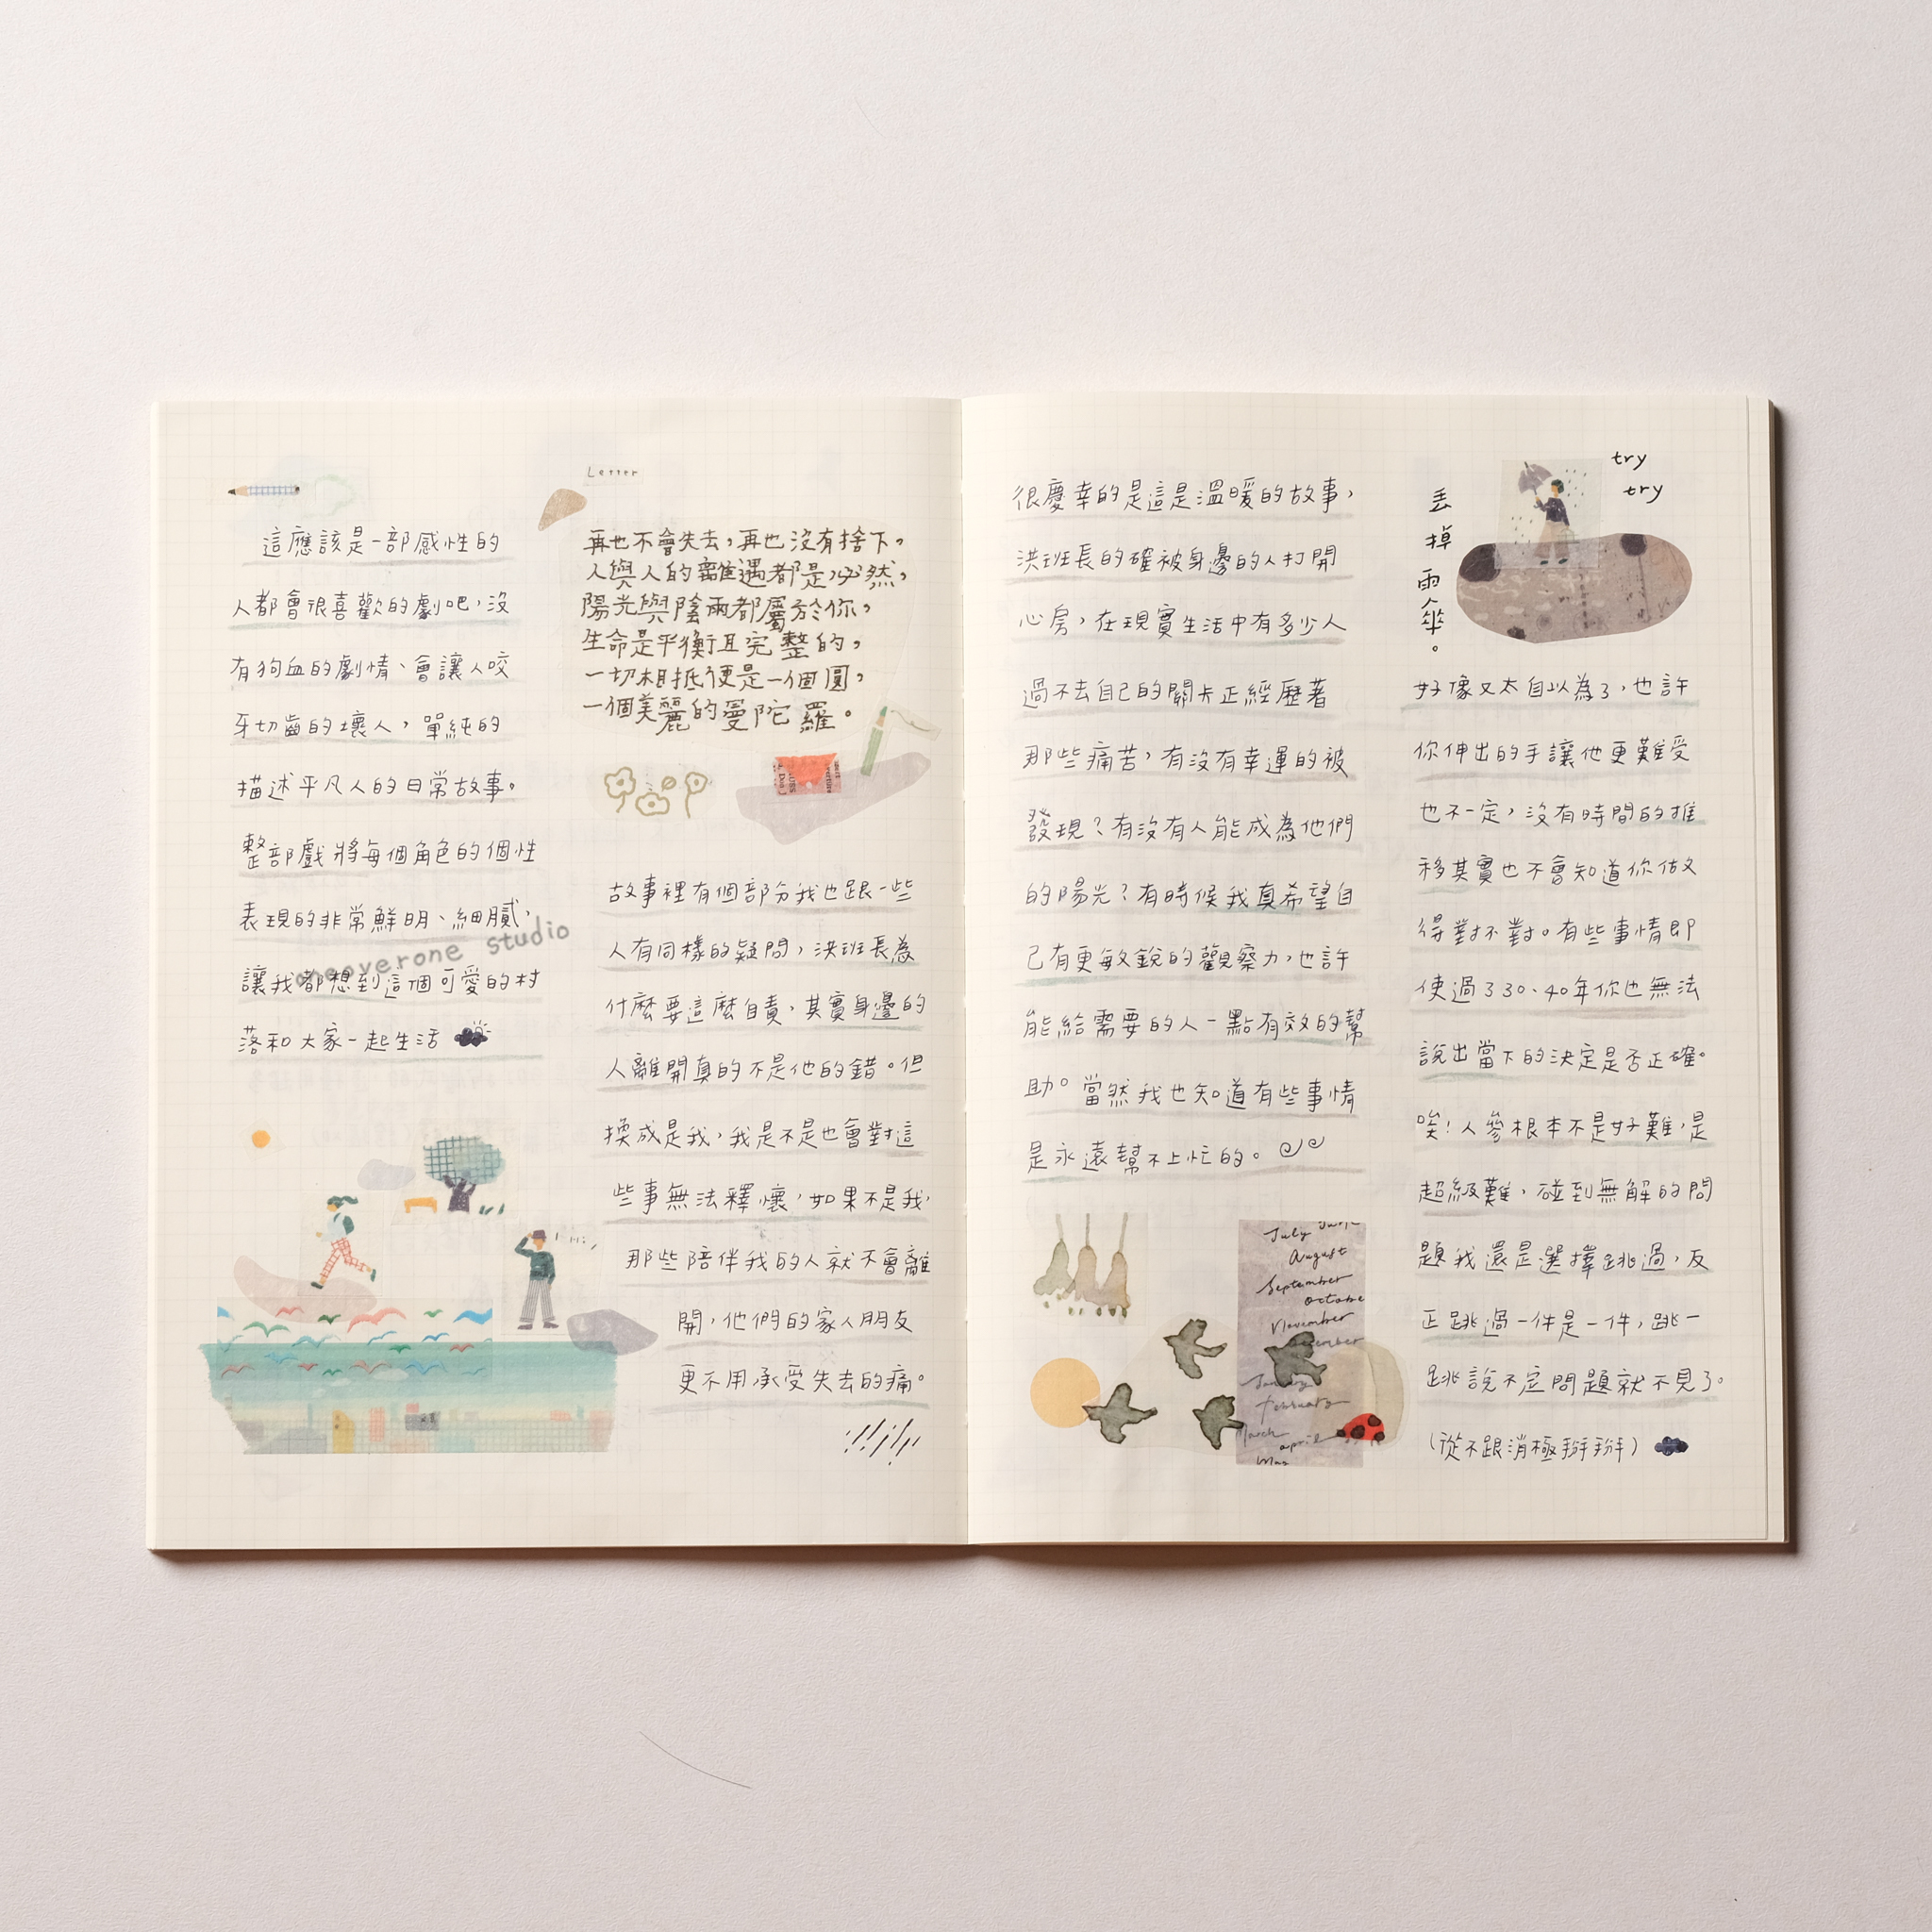 這應該是一部感性的
人都會很喜歡的劇吧,沒
有狗血的劇情、會讓人咬
牙切齒的壞人,單純的
描述平凡人的日常故事。
整部戲將每個角色的個性
表現的非常鮮明、細膩,
讓我都想到這個可愛的村
落和大家一起生活
oneoverone studio
Letter
再也不會失去,再也沒有捨下。
人與人的離遇都是必然,
陽光與陰雨都屬於你,
生命是平衡且完整的,
一切相抵便是一個圓,
一個美麗的曼陀羅。
故事裡有個部分我也跟一些
人有同樣的疑問,洪班長為
什麼要這麼自責,其實身邊的
人離開真的不是他的錯。但
換成是我,我是不是也會對這
些事無法釋懷,如果不是我,
那些陪伴我的人就不會離
開,他們的家人朋友
更不用承受失去的痛。
很慶幸的是這是溫暖的故事,
洪班長的確被身邊的人打開
心房,在現實生活中有多少人
過不去自己的關卡正經歷著
那些痛苦,有沒有幸運的被
發現?有沒有人能成為他們
的陽光?有時候我真希望自
己有更敏銳的觀察力,也許
能給需要的人一點有效的幫
助。當然我也知道有些事情
是永遠幫不上忙的。
July June
August
September
octobe
November
December
January
February
March
april
May
try
try
丟掉雨傘。
好像又太自以為了,也許
你伸出的手讓他更難受
也不一定,沒有時間的推
移其實也不會知道你做
得對不對。有些事情即
使過了30、40年你也無法
說出當下的決定是否正確。
唉!人參根本不是好難,是
超級難,碰到無解的問
題我還是選擇跳過,反
正跳過一件是一件,跳一
跳說不定問題就不見了。
(從不跟消極掰掰)